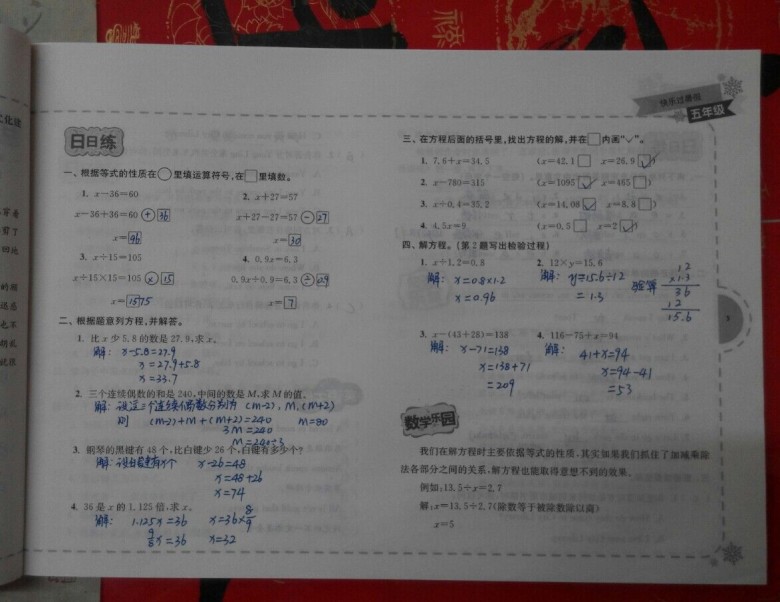 快乐过暑假
五年级
日日练
一、根据等式的性质在○里填运算符号,在□里填数。
1. x−36=60
2. x+27=57
x−36+36=60 + 36
x+27−27=57 − 27
x=96
x=30
3. x÷15=105
4. 0.9x=6.3
x÷15×15=105 × 15
0.9x÷0.9=6.3 ÷ 0.9
x=1575
x=7
二、根据题意列方程,并解答。
1. 比x少5.8的数是27.9,求x。
解: x-5.8=27.9
x=27.9+5.8
x=33.7
2. 三个连续偶数的和是240,中间的数是M,求M的值。
解: 设这三个连续偶数分别为 (M-2), M, (M+2)
则 (M-2)+M+(M+2)=240 M=80
3M=240
M=240÷3
3. 钢琴的黑键有48个,比白键少26个,白键有多少个?
解: 设白键有x个 x-26=48
x=48+26
x=74
4. 36是x的1.125倍,求x。
解: 1.125x=36 x=36×8/9
9/8x=36 x=32
三、在方程后面的括号里,找出方程的解,并在□内画“✓”。
1. 7.6+x=34.5 (x=42.1□ x=26.9☑)
2. x−780=315 (x=1095☑ x=465□)
3. x÷0.4=35.2 (x=14.08☑ x=8.8□)
4. 4.5x=9 (x=0.5□ x=2☑)
四、解方程。(第2题写出检验过程)
1. x÷1.2=0.8
2. 12×y=15.6
解: x=0.8×1.2
x=0.96
解: y=15.6÷12
=1.3
验算
12
×1.3
36
12
15.6
3. x−(43+28)=138
4. 116−75+x=94
解: x-71=138
x=138+71
=209
解: 41+x=94
x=94-41
=53
5
数学乐园
我们在解方程时主要依据等式的性质,其实如果我们抓住了加减乘除
法各部分之间的关系,解方程也能取得意想不到的效果。
例如:13.5÷x=2.7
解:x=13.5÷2.7(除数等于被除数除以商)
x=5